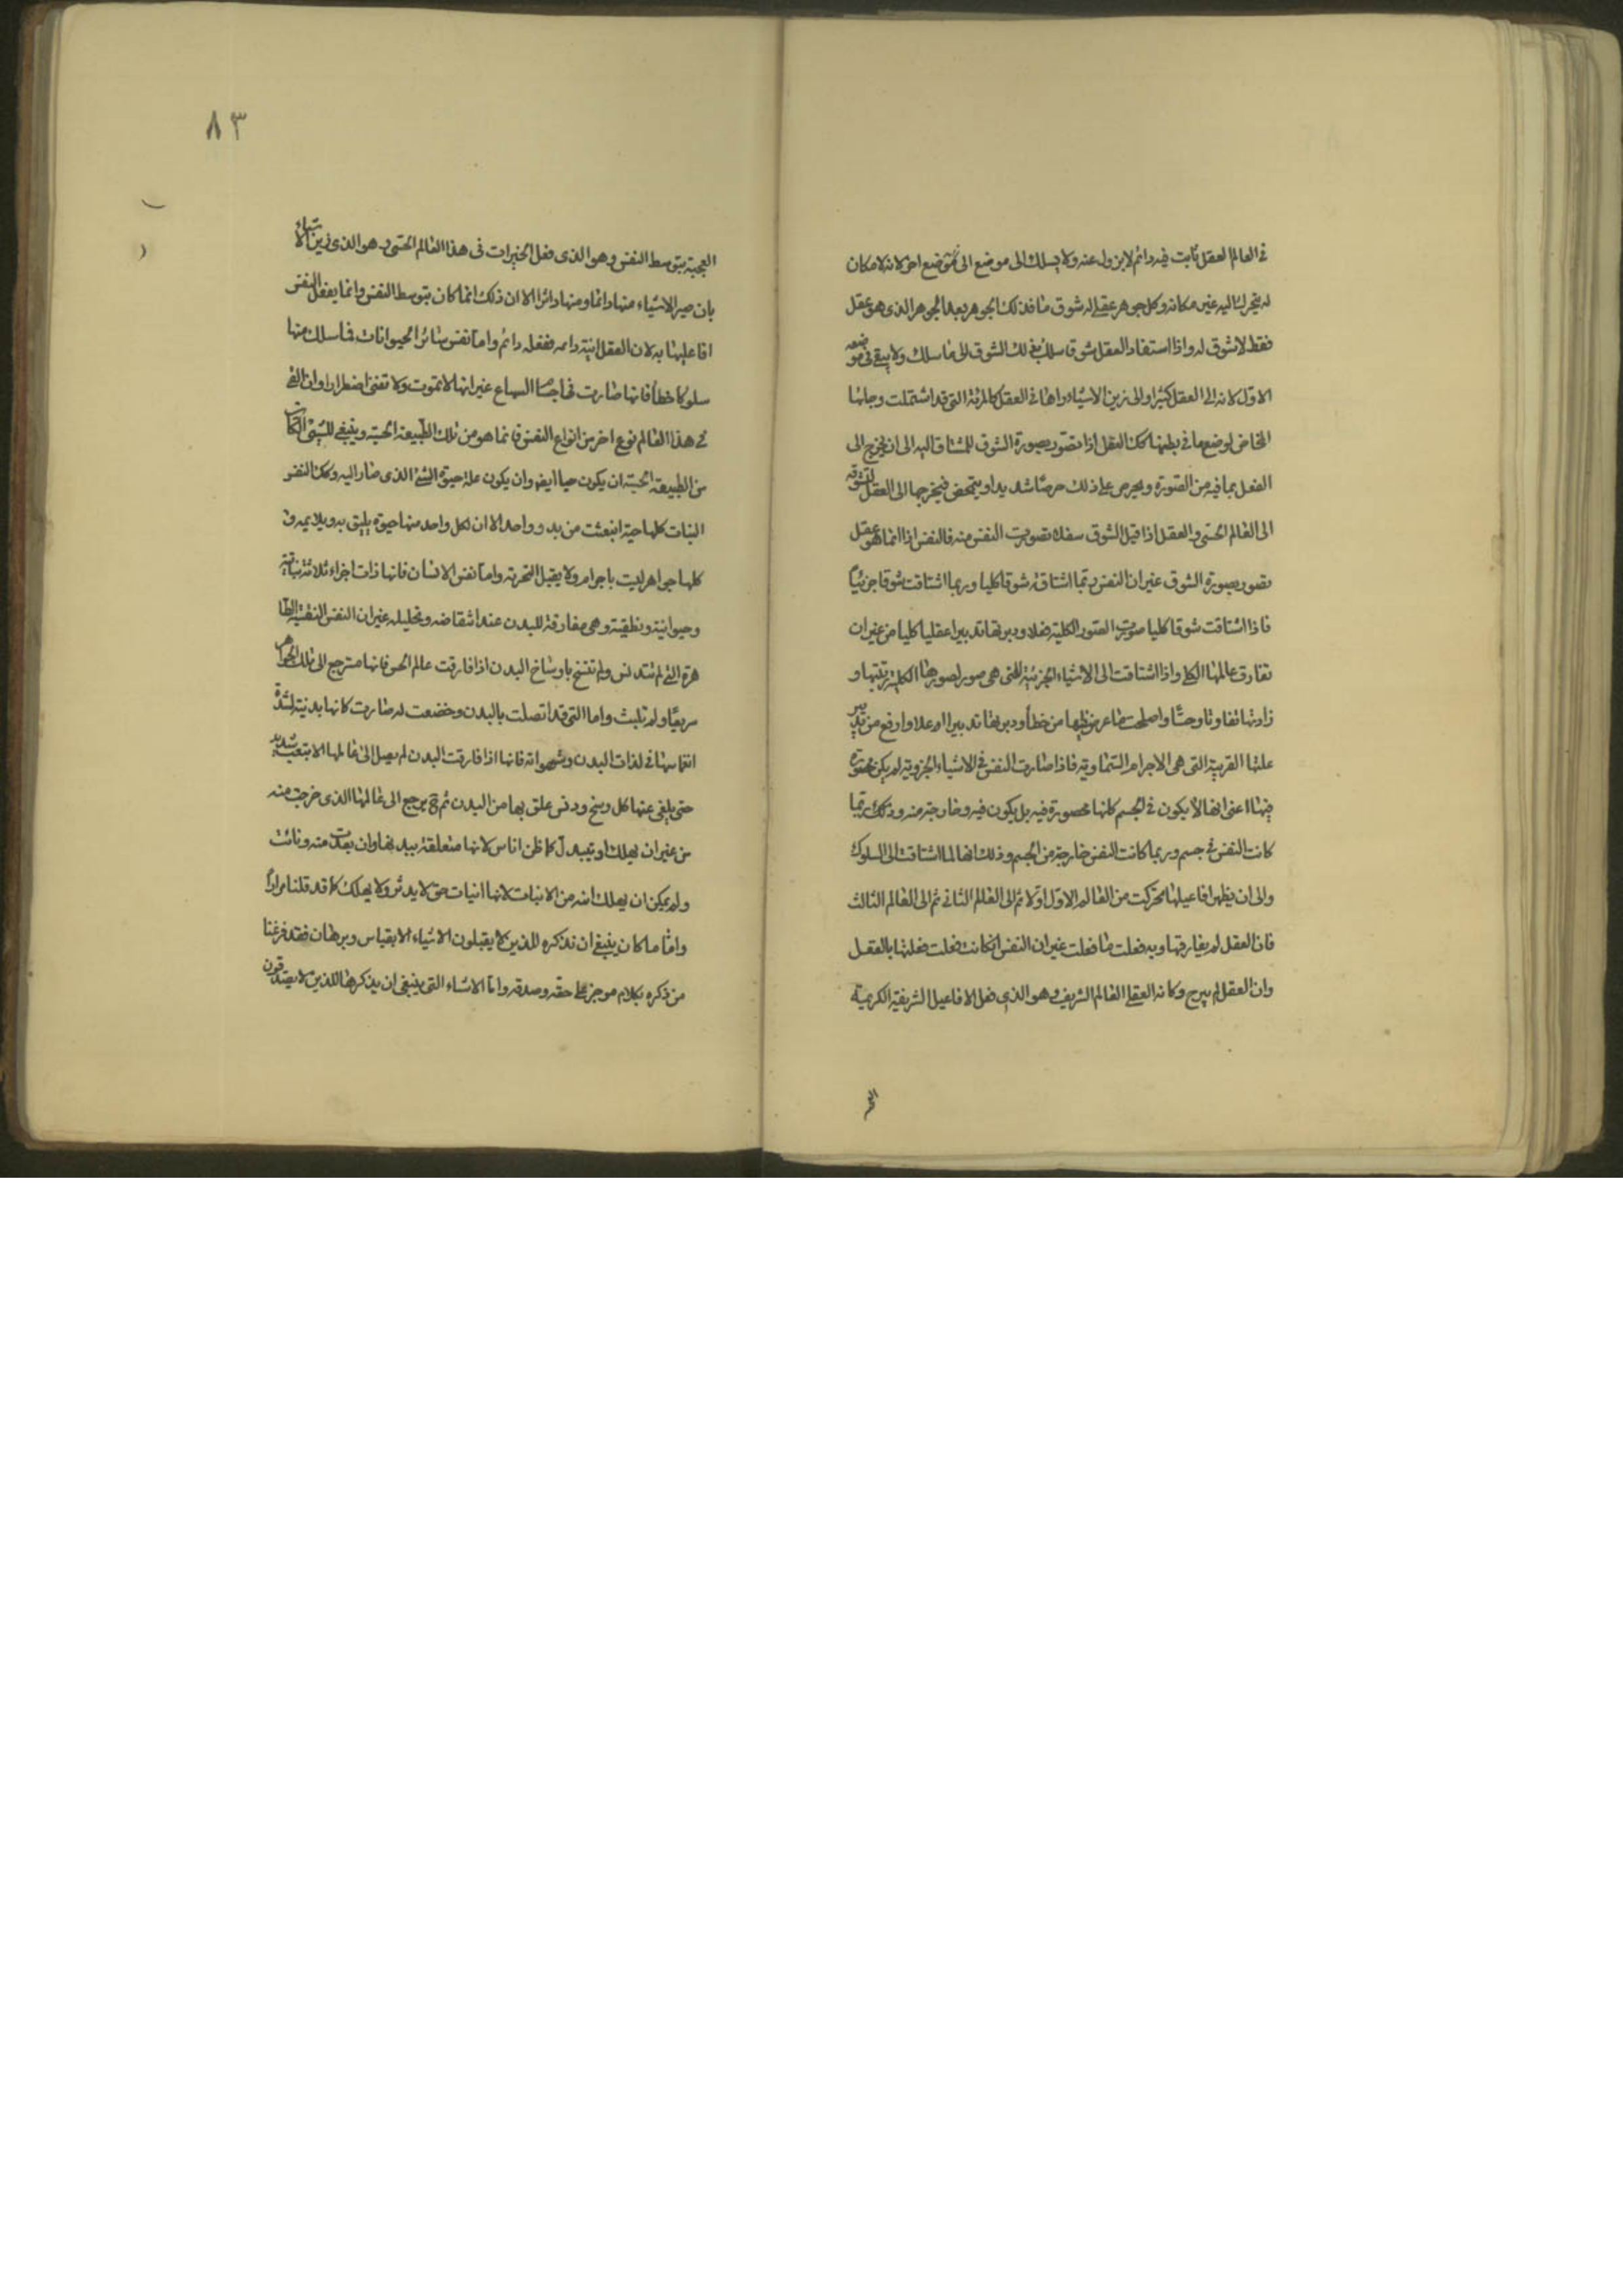 في العالم العقل ثابت فيه دائم لا يزول عنه ولا يسلك الى موضع اخر لانه لا مكان
له يتحرك اليه غير مكانه وكل جوهر عقلي له شوق ما فذلك الجوهر بعد الجوهر الذي هو عقل
فقط لا شوق له واذا استفاد العقل شوقا سلك بذلك الشوق الى ما سلك ولا يبقى في موضعه
الاول لانه الى العقل كثيرا والى زين الاشياء راها في العقل كالمرئة التي قد اشتملت وجائها
المخاض لوضع ما في بطنها كك العقل اذا تصور بصورة الشوق للمشتاق اليه الى ان يخرج الى
الفعل بما فيه من الصورة ويحرص على ذلك حرصا شديدا ويتمخض فيخرجها الى العقل لشوقه
الى العالم الحسي والعقل اذا قبل الشوق سفلا تصورت النفس منه فالنفس اذا انما هو عقل
تصور بصورة الشوق غير ان النفس ربما اشتاقت شوقا كليا وربما اشتاقت شوقا جزئيا
فاذا اشتاقت شوقا كليا صورت الصور الكلية فعلا ودبرتها تدبيرا عقليا كليا من غير ان
تفارق عالمها الكلي واذا اشتاقت الى الاشياء الجزئية التي هي صور لصورها الكلية زينتها و
زادتها نقاوتا وحسنا واصلحت ما عرض فيها من خطأ ودبرتها تدبيرا اعلا وارفع من تدبير
علتها القريبة التي هي الاجرام السماوية فاذا صارت النفس في الاشياء الجزوية لم يكن محصورة
فيها اعني انها لا يكون في الجسم كانها محصورة فيه بل يكون فيه وخارجة منه وذلك ربما
كانت النفس في جسم وربما كانت النفس خارجة من الجسم وذلك انها لما اشتاقت الى السلوك
والى ان يظهر افاعيلها تحركت من العالم الاول اولا ثم الى العالم الثاني ثم الى العالم الثالث
فان العقل لم يفارقها وبه فعلت ما فعلت غير ان النفس ان كانت فعلت فعلتها بالعقل
وان العقل لم يبرح مكانه العقلي العالم الشريف وهو الذي فعل الافاعيل الشريفة الكريمة
٨٣
العجيبة بتوسط النفس وهو الذي فعل الخيرات في هذا العالم الحسي وهو الذي زين الاشياء
بان صير الاشياء منها دائما ومنها داثرا الا ان ذلك انما كان بتوسط النفس وانما يفعل النفس
افاعيلها به لان العقل انية دائمة ففعله دائم واما نفس سائر الحيوانات فما سلك منها
سلوكا خطأ فانها صارت في اجسام السباع غير انها لا تموت ولا تفنى اضطرارا وان الفي
في هذا العالم نوع اخر من انواع النفس فانما هو من تلك الطبيعة الحسية وينبغي للشيء الكائن
من الطبيعة الحسية ان يكون حيا ايضا وان يكون علة حيوة الشيء الذي صار اليه وكك النفس
النبات كلها حية انبعثت من بدو واحد الا ان لكل واحد منها حيوة يليق به ويلائمه و
كلها جواهر ليست باجرام ولا يقبل التجزية واما نفس الانسان فانها ذات اجزاء ثلاثة نباتية
وحيوانية ونطقية وهي مفارقة للبدن عند انتقاضه وتحليله غير ان النفس النقية الطا
هرة التي لم تتدنس ولم تتسخ باوساخ البدن اذا فارقت عالم الحس فانها سترجع الى تلك الجواهر
سريعا ولم تلبث واما التي قد اتصلت بالبدن وخضعت له صارت كانها بدنية لشدة
انغماسها في لذات البدن وشهواته فانها اذا فارقت البدن لم يصل الى عالمها الا بتعب شديد
حتى يلقي عنها كل وسخ ودنس علق بها من البدن ثم ح يرجع الى عالمها الذي خرجت منه
من غير ان يهلك او تبيد كما ظن اناس لانها متعلقة ببدنها وان بعدت منه ونائت
ولم يمكن ان يهلك انية من الانيات لانها انيات حق لا يدثر ولا يهلك كما قد قلنا مرارا
واما ما كان ينبغي ان نذكره للذين لا يقبلون الاشياء الا بقياس وبرهان فقد فرغنا
من ذكره بكلام موجز على حقه وصدقه واما الاشياء التي ينبغي ان يذكرها للذين لا يصدقون